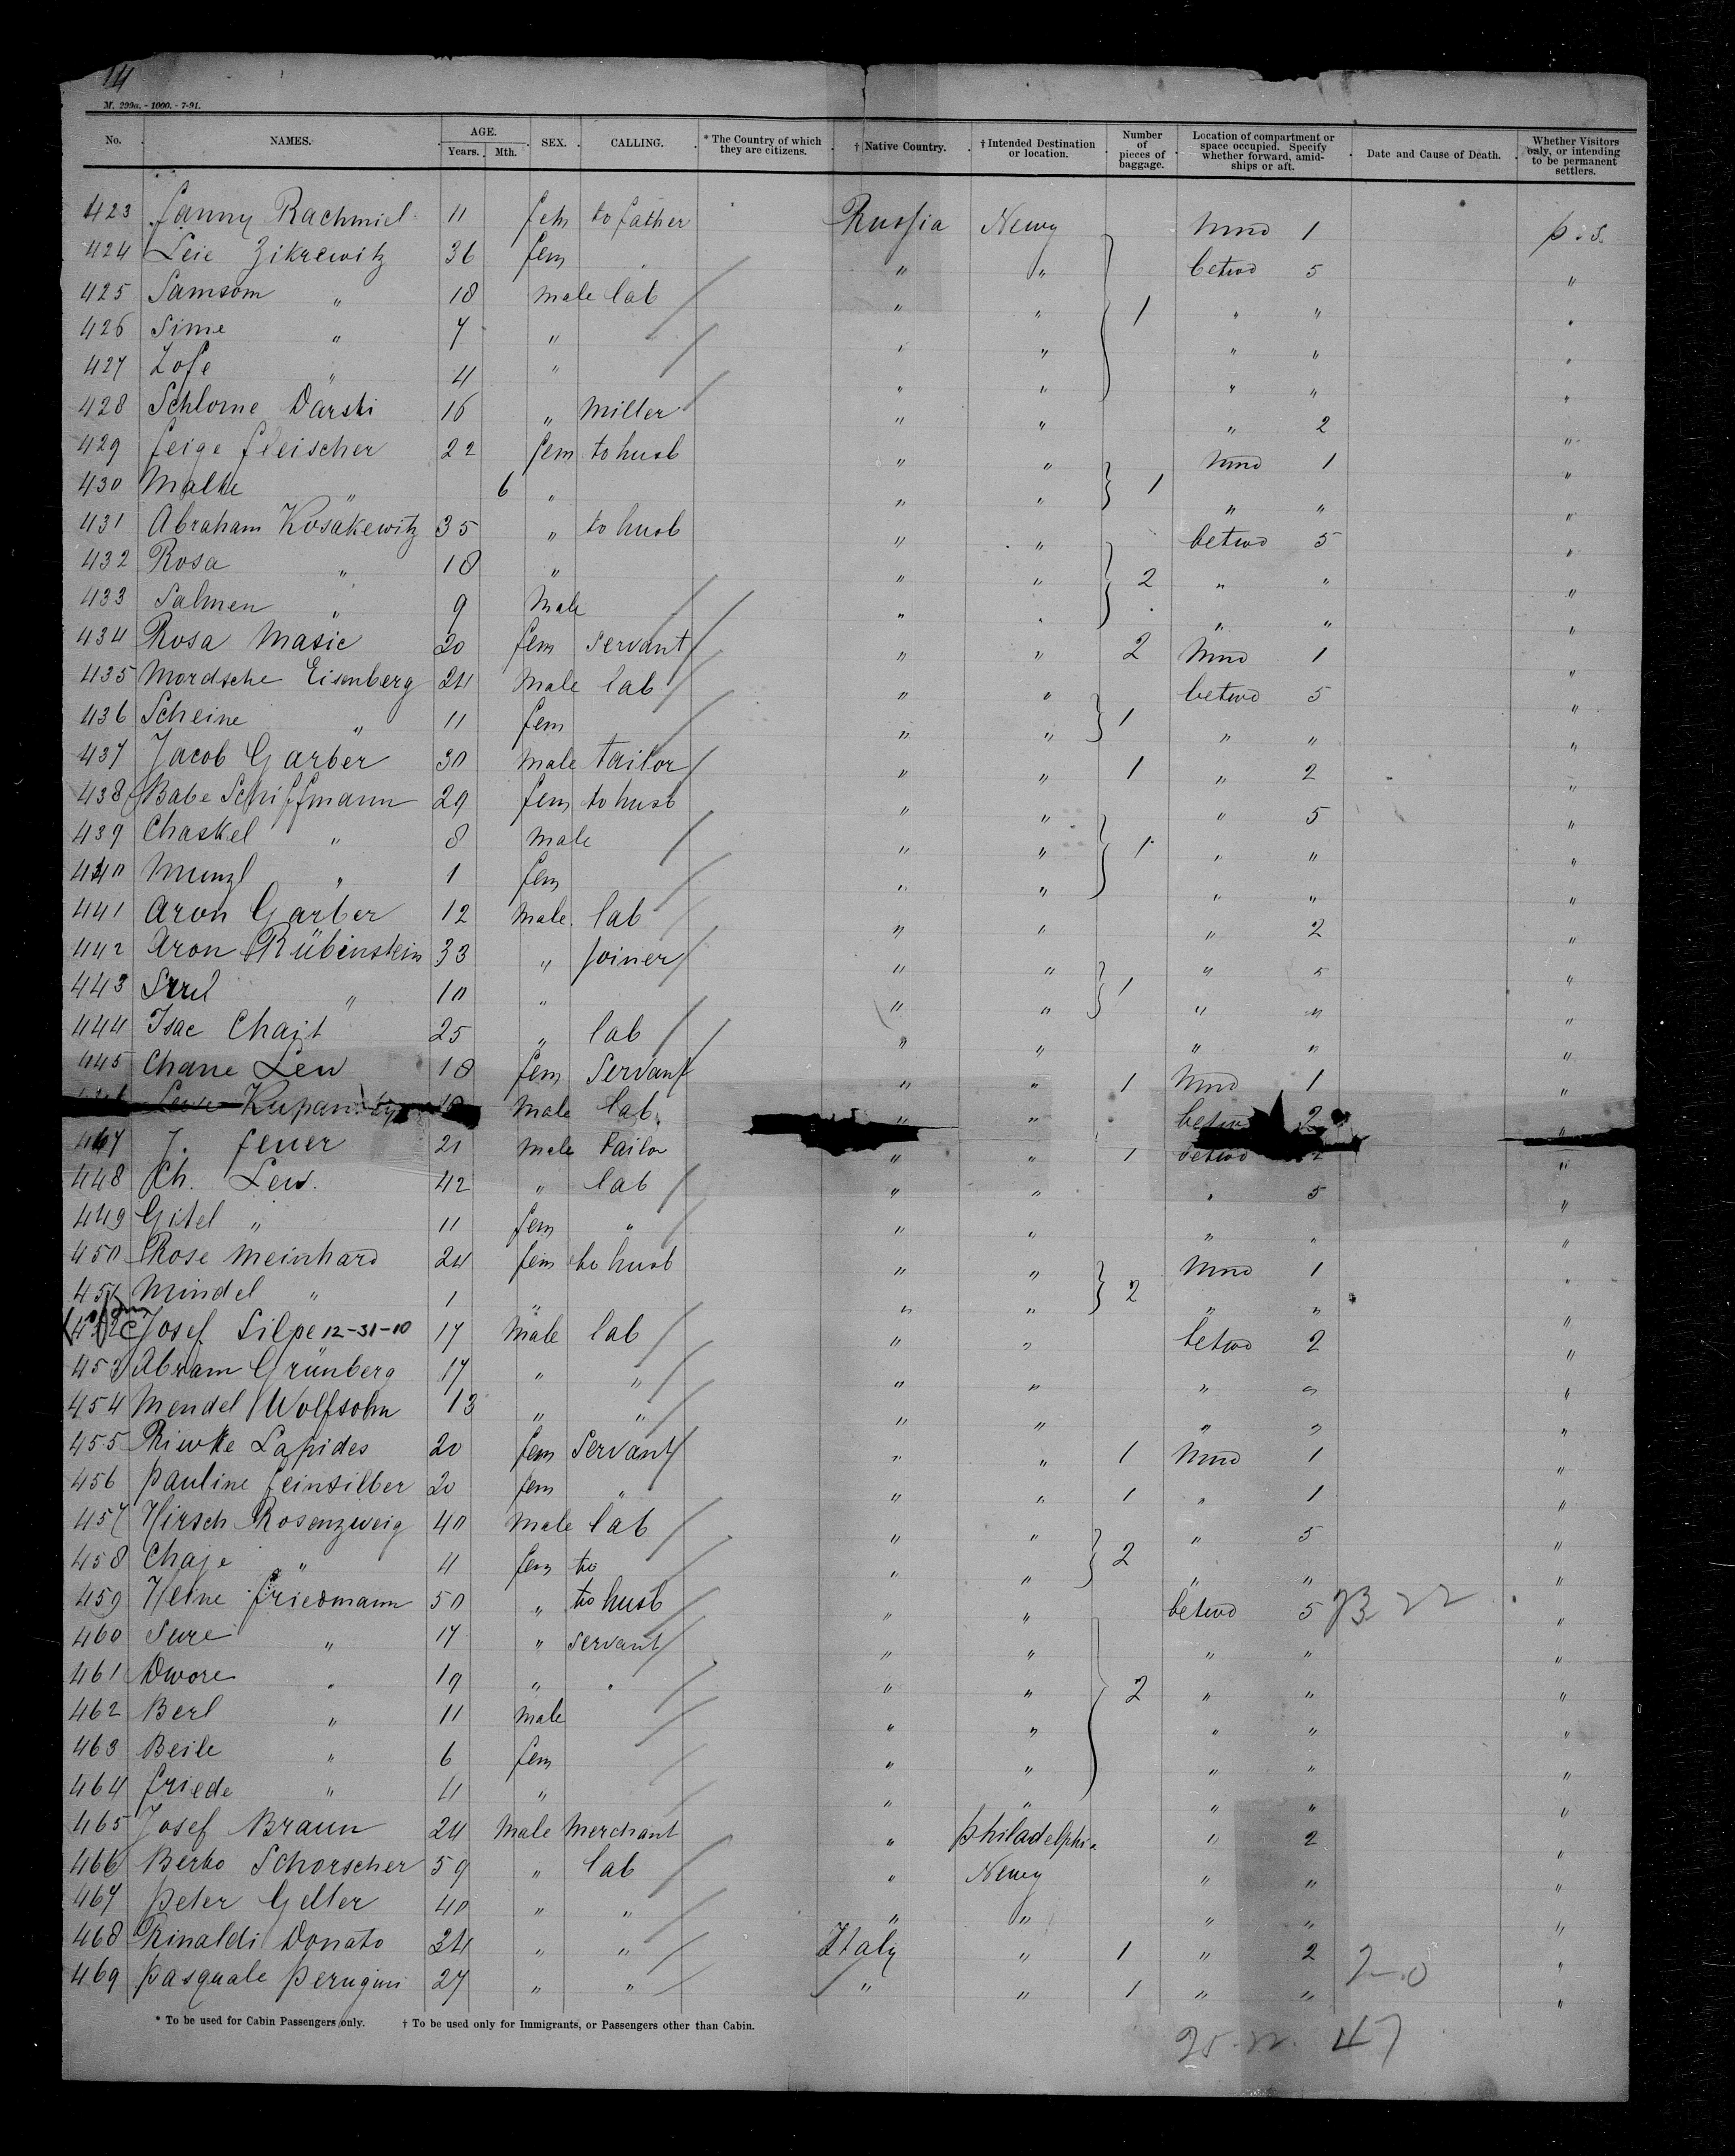 14
M. 299a. - 1000. - 7-91.
No. NAMES. AGE. Years. Mth. SEX. CALLING. * The Country of which they are citizens. † Native Country. † Intended Destination or location. Number of pieces of baggage. Location of compartment or space occupied. Specify whether forward, amidships or aft. Date and Cause of Death. Whether Visitors only, or intending to be permanent settlers.
423 Fanny Rachmiel 11 fem to father Russia Newy 1 p.s.
424 Leie Zikrewitz 36 fem " " " betwd 5 "
425 Samsom " 18 male lab " " 1 " " "
426 Sime " 7 " " " " " "
427 Zofe " 4 " " " " " "
428 Schlome Darski 16 " miller " " " 2 "
429 Feige Fleischer 22 fem to husb " " 1 "
430 Malke " 6 " " " 1 " " "
431 Abraham Kosakewitz 35 " to husb " " betwd 5 "
432 Rosa " 18 " " " 2 " " "
433 Salmen " 9 male " " " " "
434 Rosa Masic 20 fem servant " " 2 1 "
435 Mordsche Eisenberg 24 male lab " " betwd 5 "
436 Scheine " 11 fem " " 1 " " "
437 Jacob Garber 30 male tailor " " 1 " 2 "
438 Babe Schiffmann 29 fem to husb " " " 5 "
439 Chaskel " 8 male " " 1 " " "
440 Munzl " 1 fem " " " " "
441 Aron Garber 12 male lab " " " 2 "
442 Aron Rübinstein 33 " joiner " " " 5 "
443 " 10 " " " 1 " " "
444 Isac Chait 25 " lab " " " " "
445 Chane Lew 18 fem Servant " " 1 1 "
male lab " " betwd 2 "
447 J. Feuer 21 male tailor " " 1 betwd "
448 Ch. Lew. 42 " lab " " " 5 "
449 Gitel " 11 fem " " " " " "
450 Rose Meinhard 24 fem to husb " " 1 "
451 Mindel " 1 " " " 2 " " "
452 Josef Silpe 12-31-10 17 male lab " " betwd 2 "
453 Abram Grünberg 17 " " " " " " "
454 Mendel Wolfsohn 13 " " " " " " "
455 Riewke Lapides 20 fem Servant " " 1 1 "
456 Pauline Feinsilber 20 fem " " " 1 " 1 "
457 Hirsch Rosenzweig 40 male lab " " " 5 "
458 Chaje " 11 fem to " " 2 " " "
459 Heine Friedmann 50 " to husb " " betwd 5 "
460 Sure " 17 " servant " " " " "
461 Dwore " 19 " " " " 2 " " "
462 Berl " 11 male " " " " "
463 Beile " 6 fem " " " " "
464 Friede " 11 " " " " " "
465 Josef Braun 24 male merchant " Philadelphia " 2 "
466 Berko Schorscher 59 " lab " Newy " " "
467 Peter Geller 40 " " " " " " "
468 Rinaldi Donato 34 " " Italy " 1 " 2 "
469 Pasquale Perugini 27 " " " " 1 " " "
* To be used for Cabin Passengers only. † To be used only for Immigrants, or Passengers other than Cabin.
47